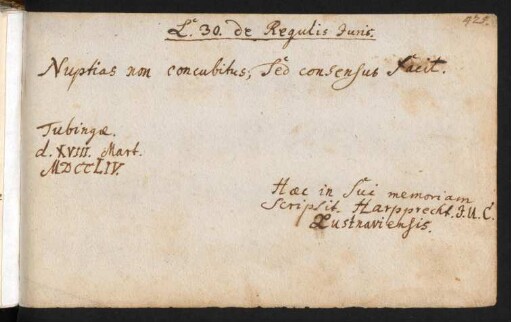 429.
L. 30. de Regulis Juris.
Nuptias non concubitus, sed consensus facit.
Tubingæ.
d. XVIII. Mart.
MDCCLIV.
Hæc in sui memoriam
scripsit Harpprecht. J. U. C.
Lustnaviensis.